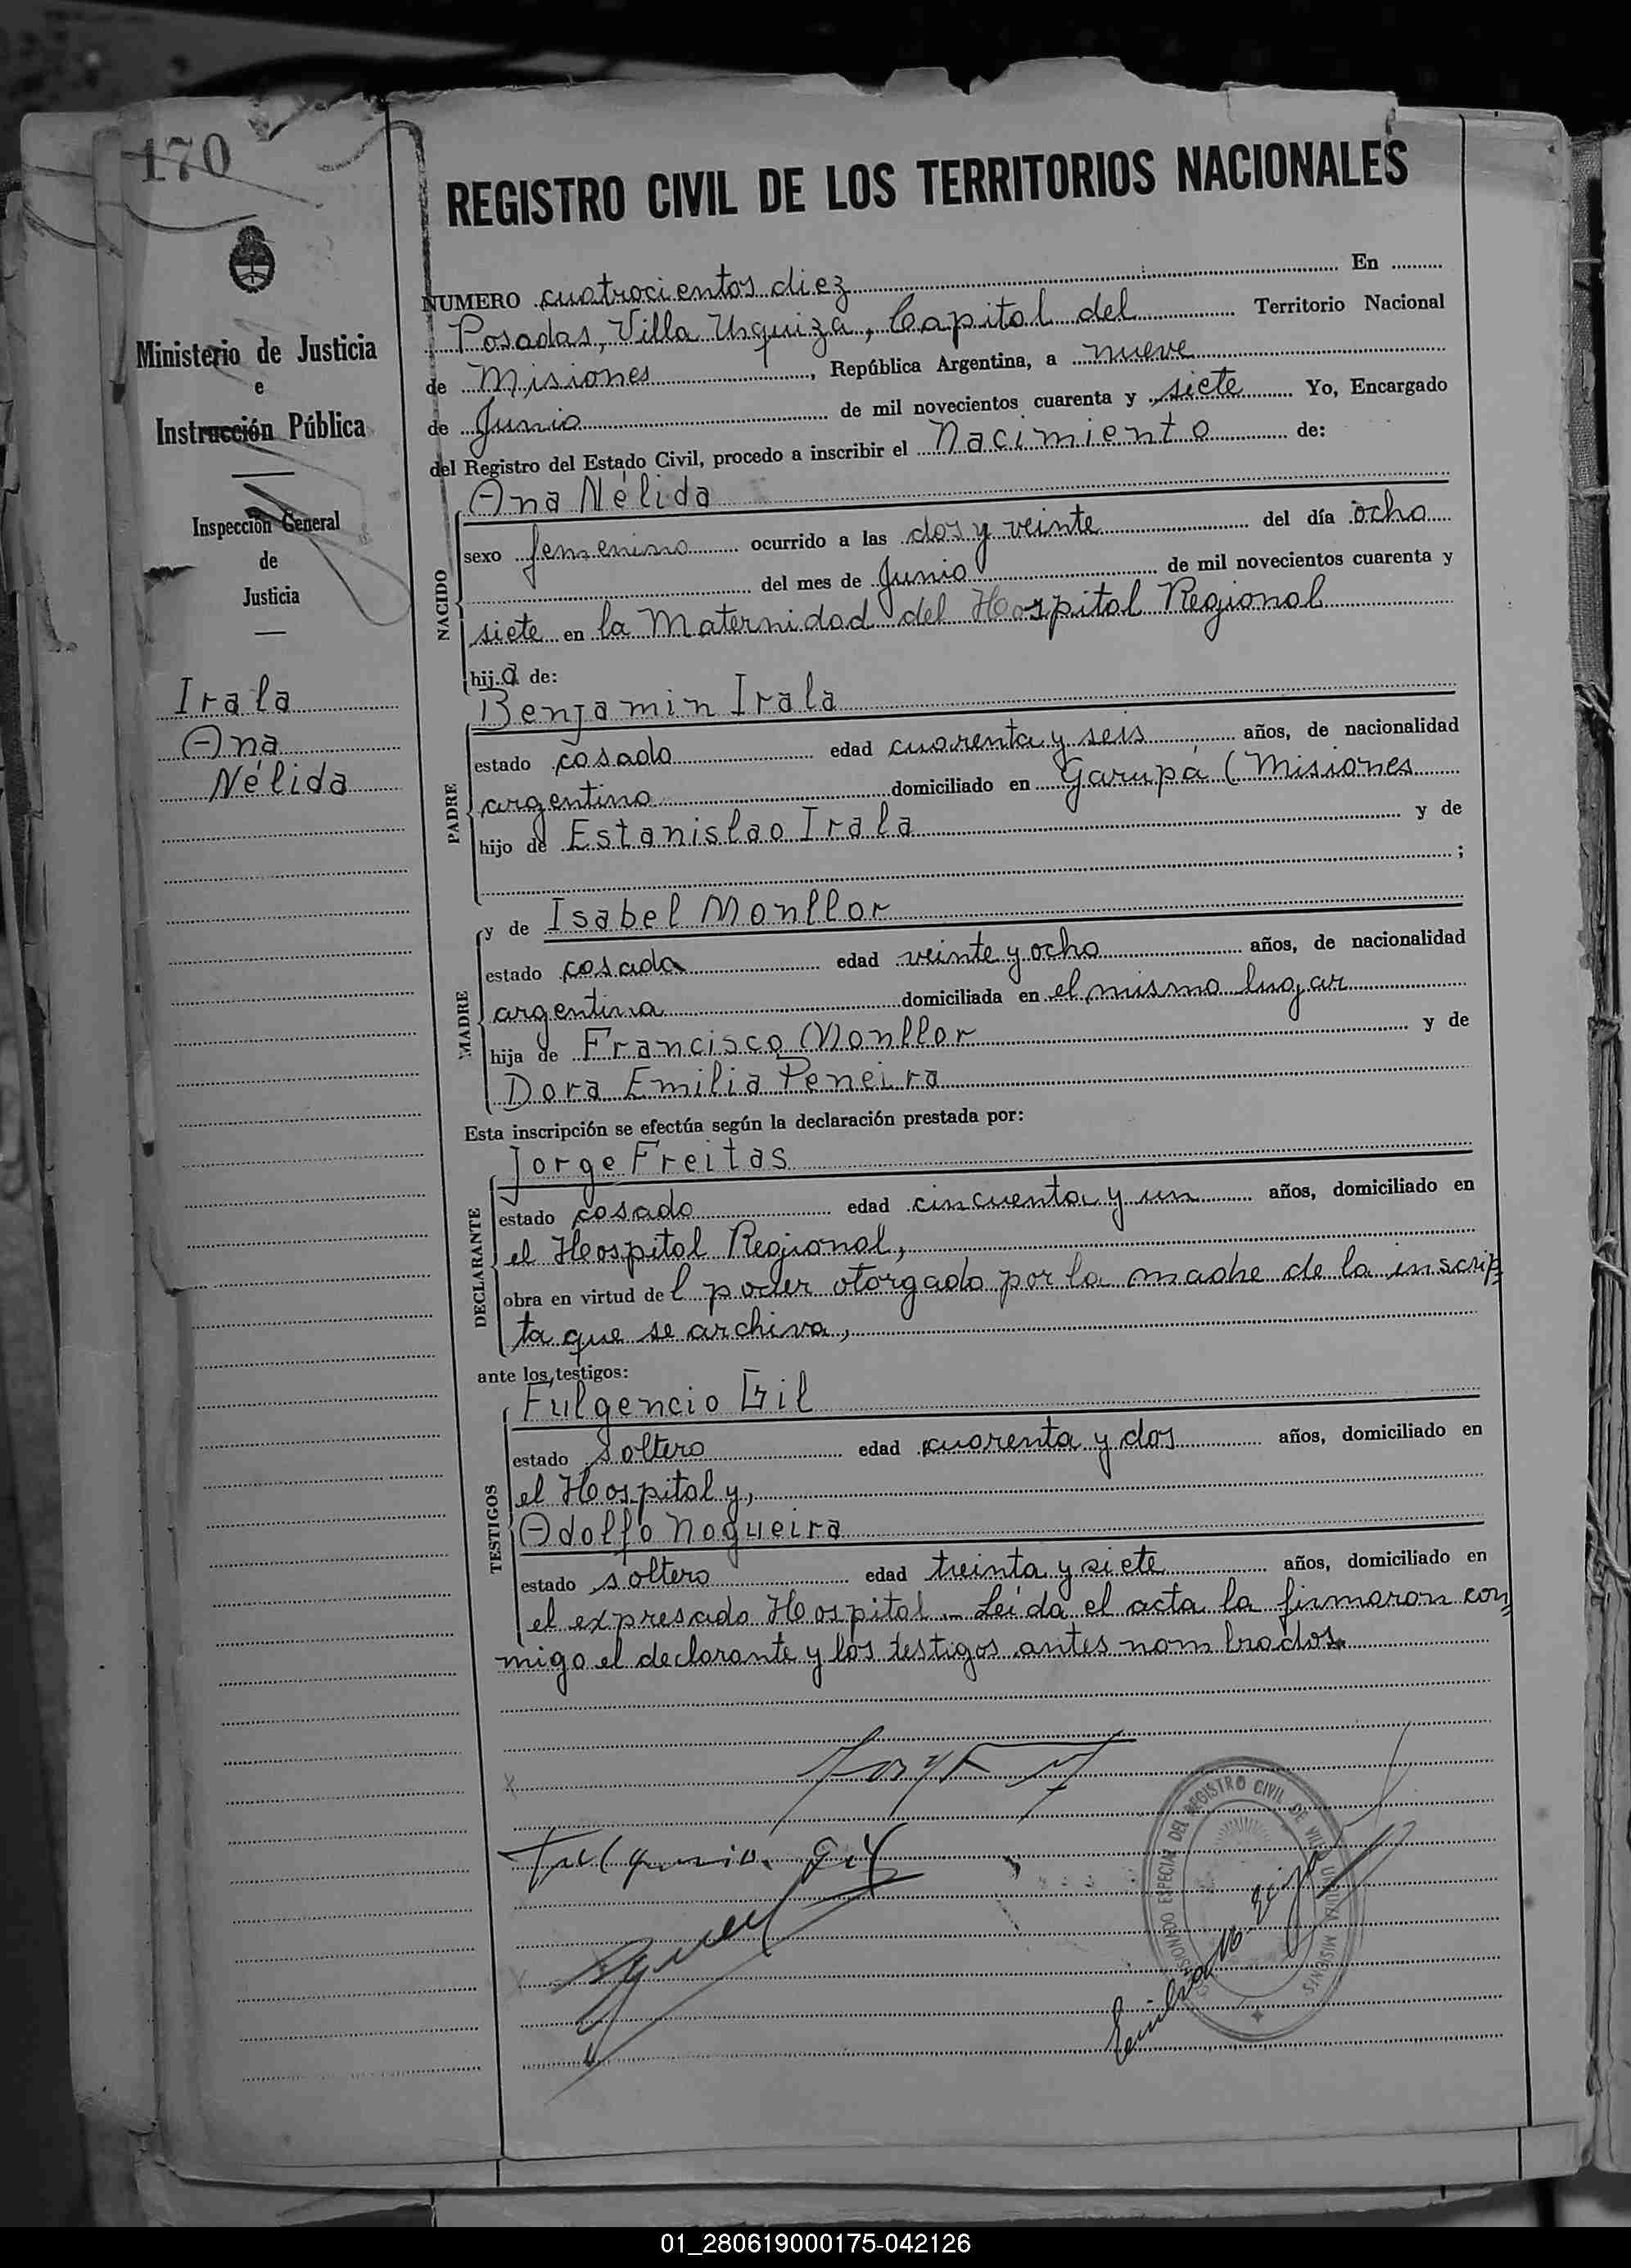 170
REGISTRO CIVIL DE LOS TERRITORIOS NACIONALES
Ministerio de Justicia
e
Instrucción Pública
Inspección General
de
Justicia
Irala
Ana
Nélida
NUMERO cuatrocientos diez En
Posadas, Villa Urquiza, Capital del Territorio Nacional
de Misiones, República Argentina, a nueve
de Junio de mil novecientos cuarenta y siete Yo, Encargado
del Registro del Estado Civil, procedo a inscribir el nacimiento de:
NACIDO
Ana Nélida
sexo femenino ocurrido a las dos y veinte del día ocho
del mes de Junio de mil novecientos cuarenta y
siete en la Maternidad del Hospital Regional
hija de:
PADRE
Benjamin Irala
estado casado edad cuarenta y seis años, de nacionalidad
argentino domiciliado en Garupá (Misiones
hijo de Estanislao Irala y de
;
MADRE
y de Isabel Monllor
estado casada edad veinte y ocho años, de nacionalidad
argentina domiciliada en el mismo lugar
hija de Francisco Monllor y de
Dora Emilia Peneira
Esta inscripción se efectúa según la declaración prestada por:
DECLARANTE
Jorge Freitas
estado casado edad cincuenta y un años, domiciliado en
el Hospital Regional,
obra en virtud del poder otorgado por la madre de la inscrip
ta que se archiva,
ante los testigos:
TESTIGOS
Fulgencio Gil
estado soltero edad cuarenta y dos años, domiciliado en
el Hospital y,
Adolfo Nogueira
estado soltero edad treinta y siete años, domiciliado en
el expresado Hospital - Leída el acta la firmaron con
migo el declarante y los testigos antes nombrados.
Fulgencio Gil
REGISTRO CIVIL DE VILLA URQUIZA MISIONES
ESPECIAL DEL
01_280619000175-042126